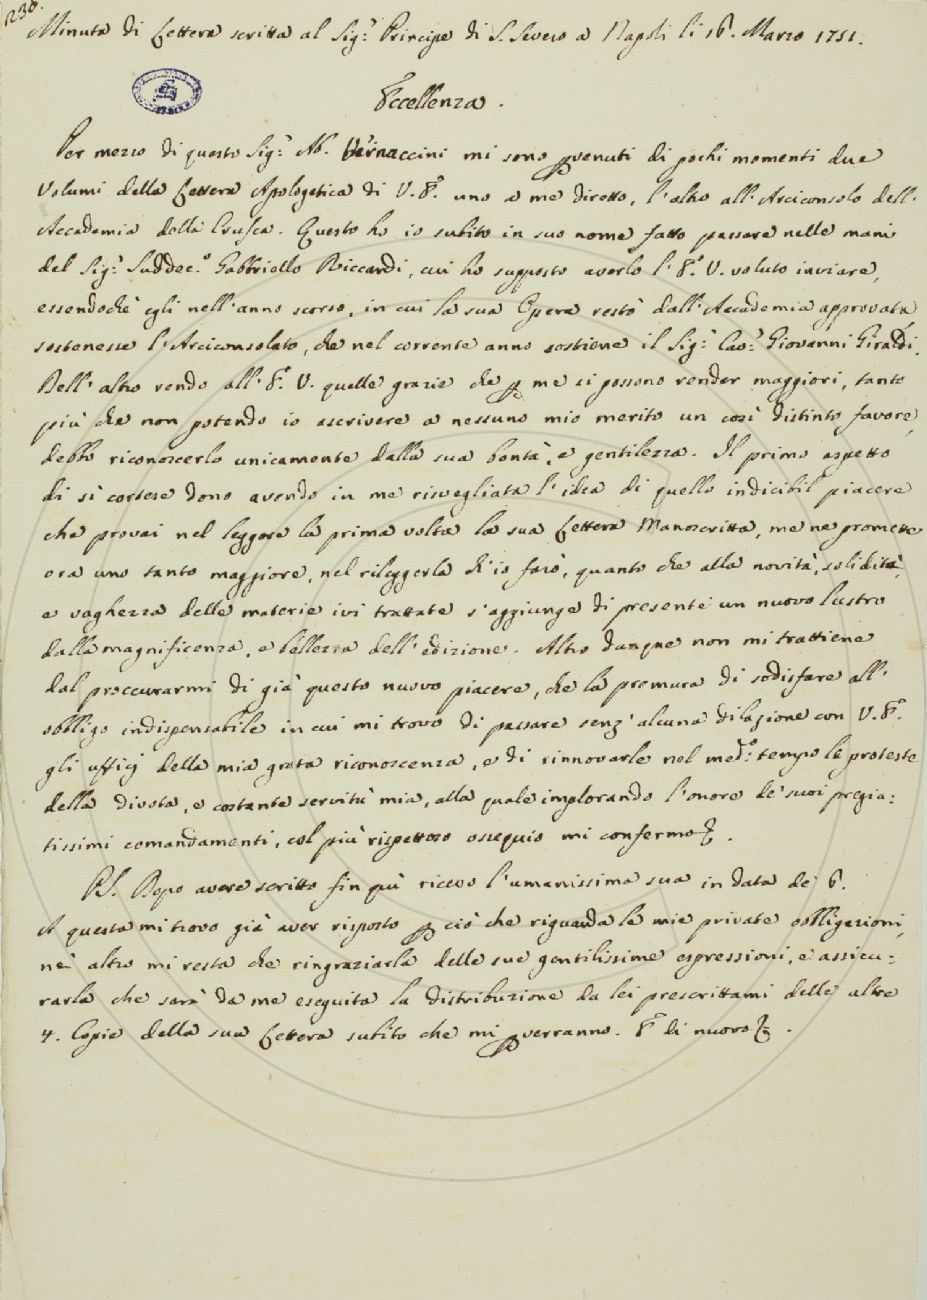 230.
Minuta di Lettera scritta al Sig.r Principe di S. Severo a Napoli li 16. Marzo 1751.
Eccellenza.
Per mezzo di questo Sig.r Ab. Vernaccini mi sono pvenuti di pochi momenti due
Volumi della Lettera Apologetica di V. E. uno a me diretto, l'altro all'Arciconsolo dell'
Accademia della Crusca. Questo ho io subito in suo nome fatto passare nelle mani
del Sig.r Suddec.o Gabbriello Riccardi, cui ho supposto averlo l'E. V. voluto inviare,
essendochè egli nell'anno scorso, in cui la sua Opera restò dall'Accademia approvata
sostenesse l'Arciconsolato, che nel corrente anno sostiene il Sig.r Cav.r Giovanni Giraldi.
Dell'altro rendo all'E. V. quelle grazie che p me si possono render maggiori, tanto
più che non potendo io ascrivere a nessuno mio merito un così distinto favore,
debbo riconoscerlo unicamente dalla sua bontà, e gentilezza. Il primo aspetto
di sì cortese dono avendo in me risvegliata l'idea di quello indicibil piacere
che provai nel leggere la prima volta la sua Lettera Manoscritta, me ne promette
ora uno tanto maggiore, nel rileggerla ch'io farò, quanto che alla novità, solidità,
e vaghezza delle materie ivi trattate s'aggiunge di presente un nuovo lustro
dalla magnificenza, e bellezza dell'edizione. Altro dunque non mi trattiene
dal proccurarmi di già questo nuovo piacere, che la premura di sodisfare all'
obbligo indispensabile in cui mi trovo di passare senz'alcuna dilazione con V. E.
gli uffizj della mia grata riconoscenza, e di rinnovarle nel med.o tempo le proteste
della divota, e costante servitù mia, alla quale implorando l'onore de' suoi pregia:
tissimi comandamenti, col più rispettoso ossequio mi confermo &.
PS. Dopo avere scritto fin quì ricevo l'umanissima sua in data de' 6.
A questa mi trovo già aver risposto p ciò che riguarda le mie private obbligazioni,
nè altro mi resta che ringraziarla delle sue gentilissime espressioni, e assicu:
rarla che sarà da me eseguita la distribuzione da lei prescrittami delle altre
4. Copie della sua Lettera subito che mi pverranno. E di nuovo &.